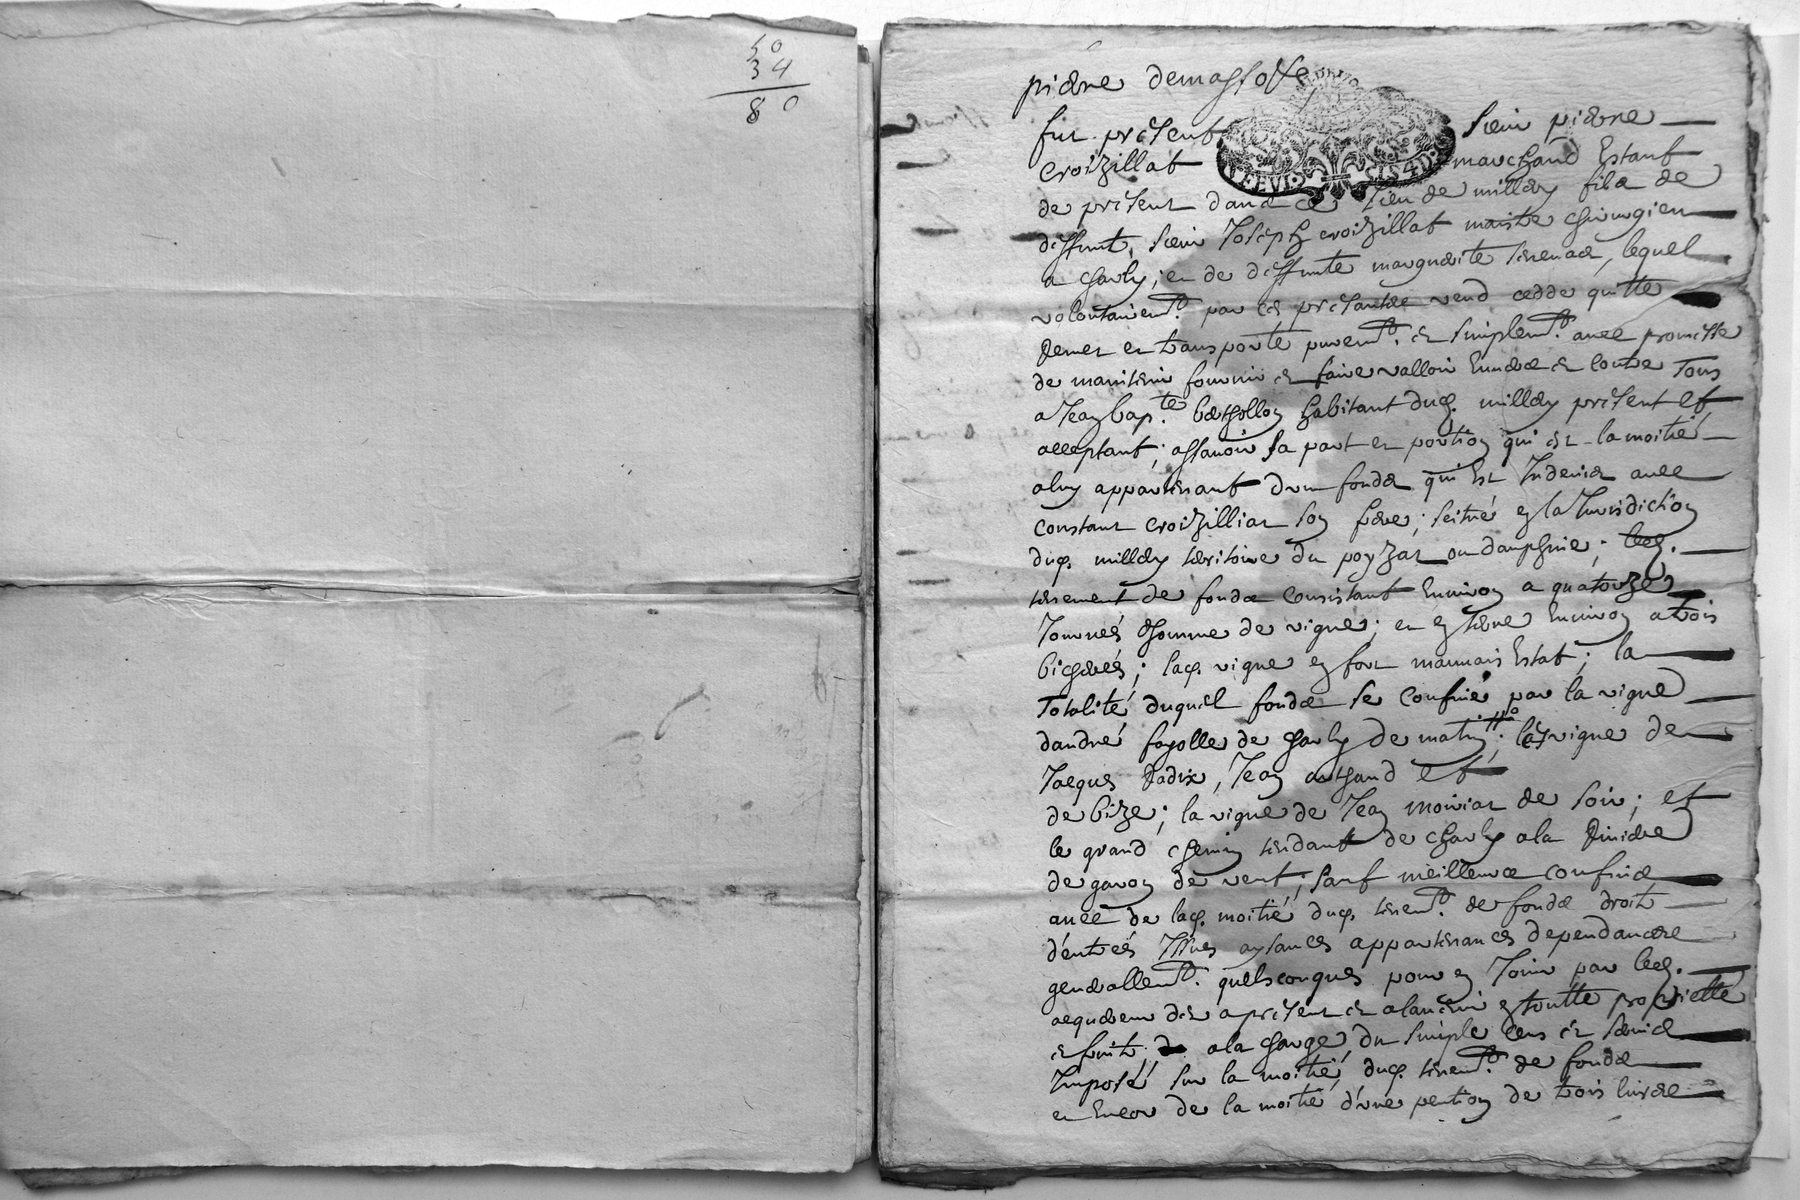 50
34
80
pierre demassosse
fut présent sieur pierre
croizillat marchand Estant
de présent dans ce lieu de millery fils de
deffunt, sieur Joseph croizillat maistre chirurgien
a charly; et de deffunte marguerite lequel
volontairemt. par ces présantes vend cedde quitte
Remet et transporte puremt. et simplemt. avec promesse
de maintenir fournir et faire valloir Envers et contre Tous
a Jean bapte. berthollon habitant dud. millery présent et
acceptant; assavoir sa part et portion qui est la moitié
aluy appartenant d'un fonds qui Est Indevis avec
constant croizilliat son frere; scitué en la Jurisdiction
dud. millery teritoire du poyzat ou dauphine; led.
tenement de fonds consistant Environ a quatorze
Journés d'homme de vigne; et en terre Environ a trois
bicherées; lad. vigne en fort mauvais Estat; la
Totalité duquel fonds se confine par la vigne
dandré fayolle de charly de matin; la vigne de
Jacques Radix, Jean arthaud Et
de bize; la vigne de Jean moiriat de soir; et
le grand chemin tendant de charly ala Riviere
de garon de vent, sauf meilleurs confins
avec de lad. moitié dud. tenemt. de fonds droit
d'entrés Issues aysances appartenances dependances
generallemt. quelsconques pour en Jouir par led.
acquereur des aprésent et alavenir en toutte proprietté
et fruits; ala charge du simple cens et servis
Imposé sur la moitié dud. tenemt. de fonds
et Encor de la moitié d'une pention de trois livres